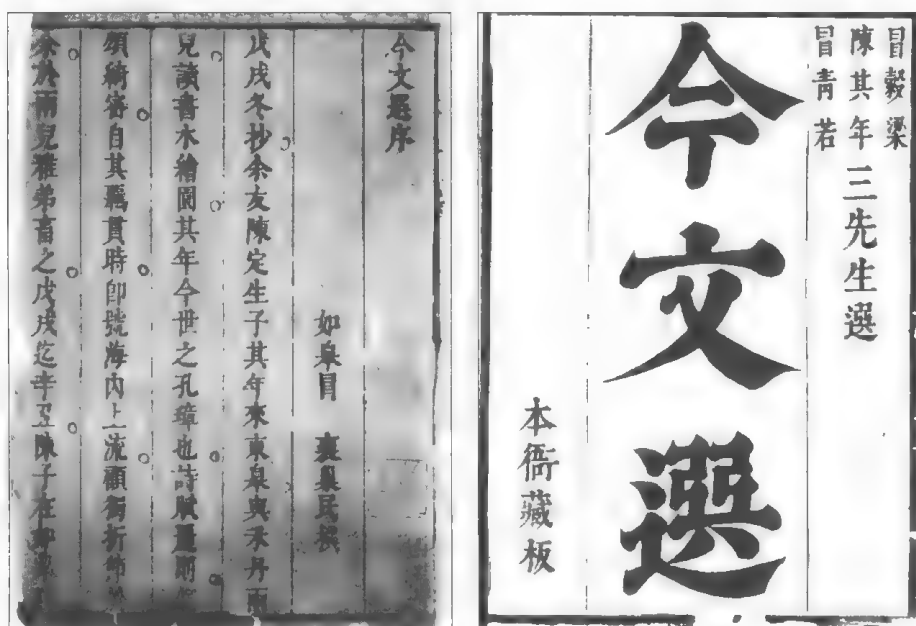 冒穀梁
陳其年
冒青若
三先生選
今文選
本衙藏板
今文選序
如臯冒 襄巢民撰
戊戌冬抄余友陳定生子其年來東臯與禾丹兩
兒讀書水繪園其年今世之孔璋也詩賦
頌綺 自其 貫時卽號海內上流顧衡
余於兩兒雅弟畜之戊戌迄辛丑陳子在